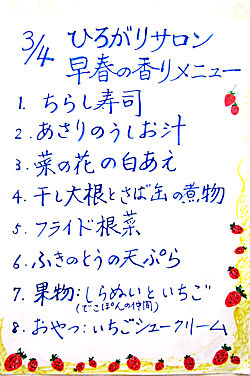 3/4 ひろがりサロン
早春の香りメニュー
1. ちらし寿司
2. あさりのうしお汁
3. 菜の花の白あえ
4. 干し大根とさば缶の煮物
5. フライド根菜
6. ふきのとうの天ぷら
7. 果物:しらぬいといちご
(でこぽんの仲間)
8. おやつ:いちごシュークリーム